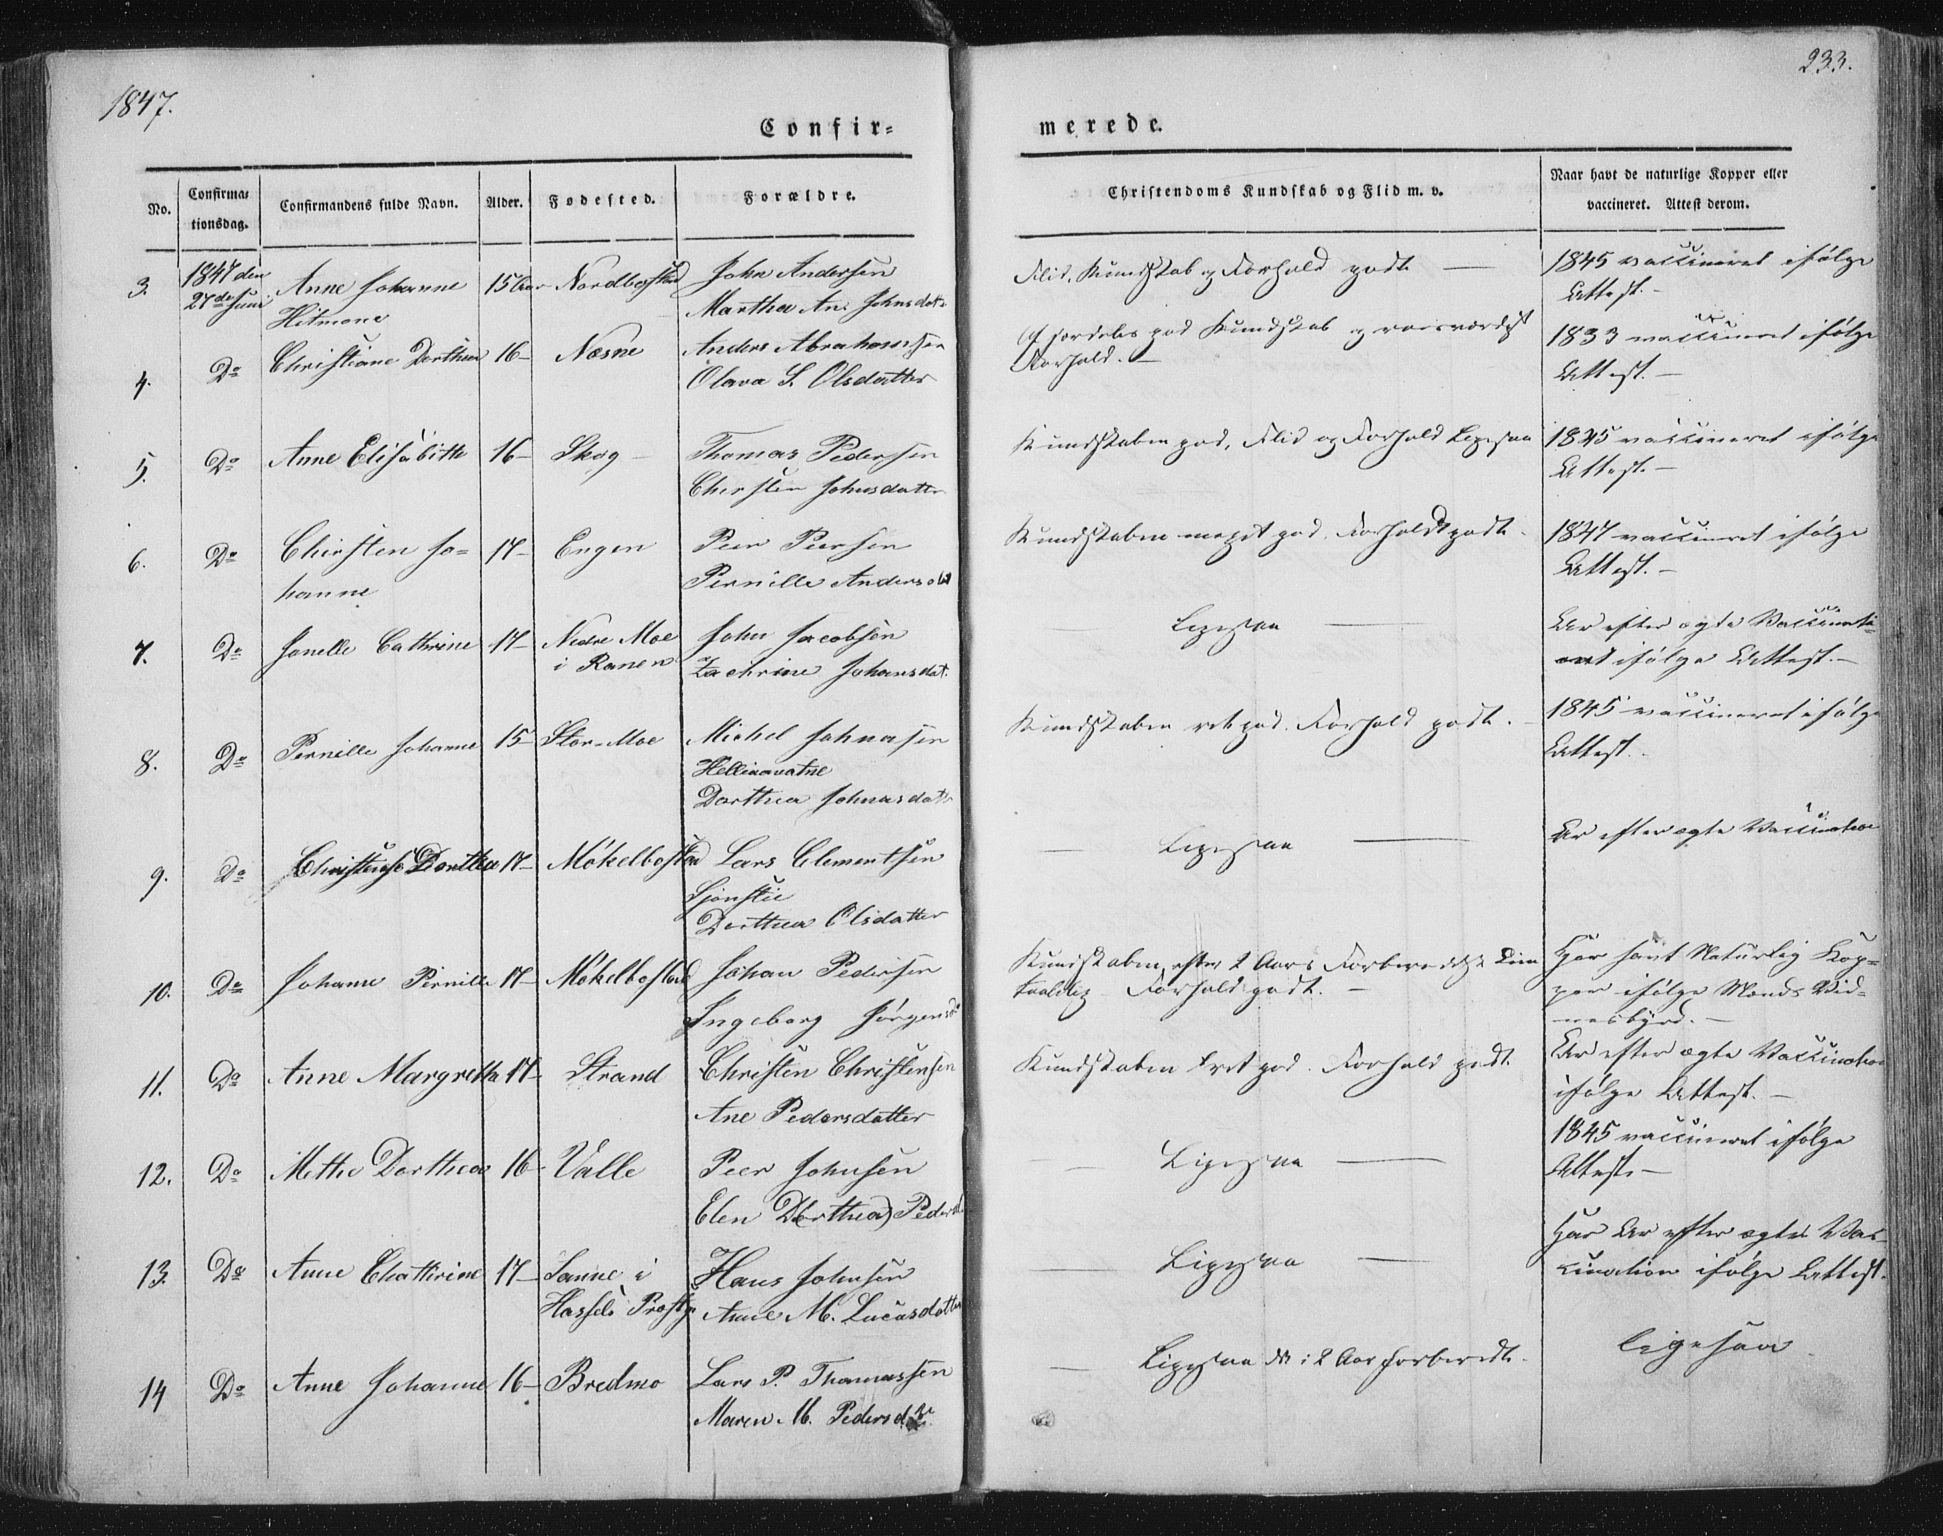 1847.
233.
Confir=
merede.
No.
Confirma=
tionsdag.
Confirmandens fulde Navn.
Alder.
Fødested.
Forældre.
Christendoms Kundskab og Flid m. v.
Naar havt de naturlige Kopper eller
vaccineret. Attest derom.
3.
1847 den
27de Juni
Anne Johanne
15 Aar
Nordbostad
John Andersen
Martha An: Johnsdatr
Flid, Kundskab og Forhold godt —
1845 vaccineret ifølge
Attest. —
4.
Do
Christiane Dorthea
16 —
Næsne
Anders Abrahamsen
Olava S. Olsdatter
Kundskab og
Forhold. —
1833 vaccineret ifølge
Attest. —
5.
Do
Anne Elisabeth
16 —
Skog —
Thomas Pedersen
Chirsten Johnsdatter
Kundskaben god, Flid og Forhold Ligesaa
1845 vaccineret ifølge
Attest. —
6.
Do
Chirsten Jo=
hanne
17 —
Engen
Peer Peersen
Pernille Andersd
Kundskaben meget god. Forhold godt.
1847 vaccineret ifølge
Attest. —
7.
Do
Janelle Cathrine
17 —
Nedre Moe
i Ranen
John Jacobsen
Zachrine Johansdat.
— Ligesaa —
Ar efter ægte Vaccinati=
ifølge Attest. —
8.
Do
Pernille Johanne
15 —
Stor-Moe
Michel Johnasen
Dorthea Johnasdatr
Kundskaben ret god. Forhold godt. —
1845 vaccineret ifølge
Attest.
9.
Do
Dorthea
17 —
Møkelbostad
Lars Clementsen
Dorthea Olsdatter
— Ligesaa —
Ar efter ægte Vaccination
10.
Do
Johanne Pernille
17 —
Møkelbostad
Johan Pedersen
Ingeborg Jørgensdr
Kundskaben efter 2 Aars Forberedelse
taalelig Forhold godt. —
Har havt Naturlig Kop=
per ifølge Mands Vid=
nesbyrd. —
11.
Do
Anne Margretha
17 —
Strand
Christen Christensen
Ane Pedersdatter
Kundskaben god. Forhold godt.
Ar efter ægte Vaccination
ifølge Attest. —
12.
Do
Methe Dorthea
16 —
Valle
Peer Johnsen
Elen Dorthea Pedersd.
— Ligesaa —
1845 vaccineret ifølge
Attest —
13.
Do
Anne Chathrine
17 —
Sanne i
Hassels Præstg
Hans Johnsen
Anne M. Lucasdatter
— Ligesaa —
Har Ar efter ægte Vac
cination ifølge Attest.
14
Do
Anne Johanne
16 —
Bredmo
Lars P. Thomassen
Maren M. Pedersd.
— Ligesaa i 2 Aar forberedt.
ligesaa